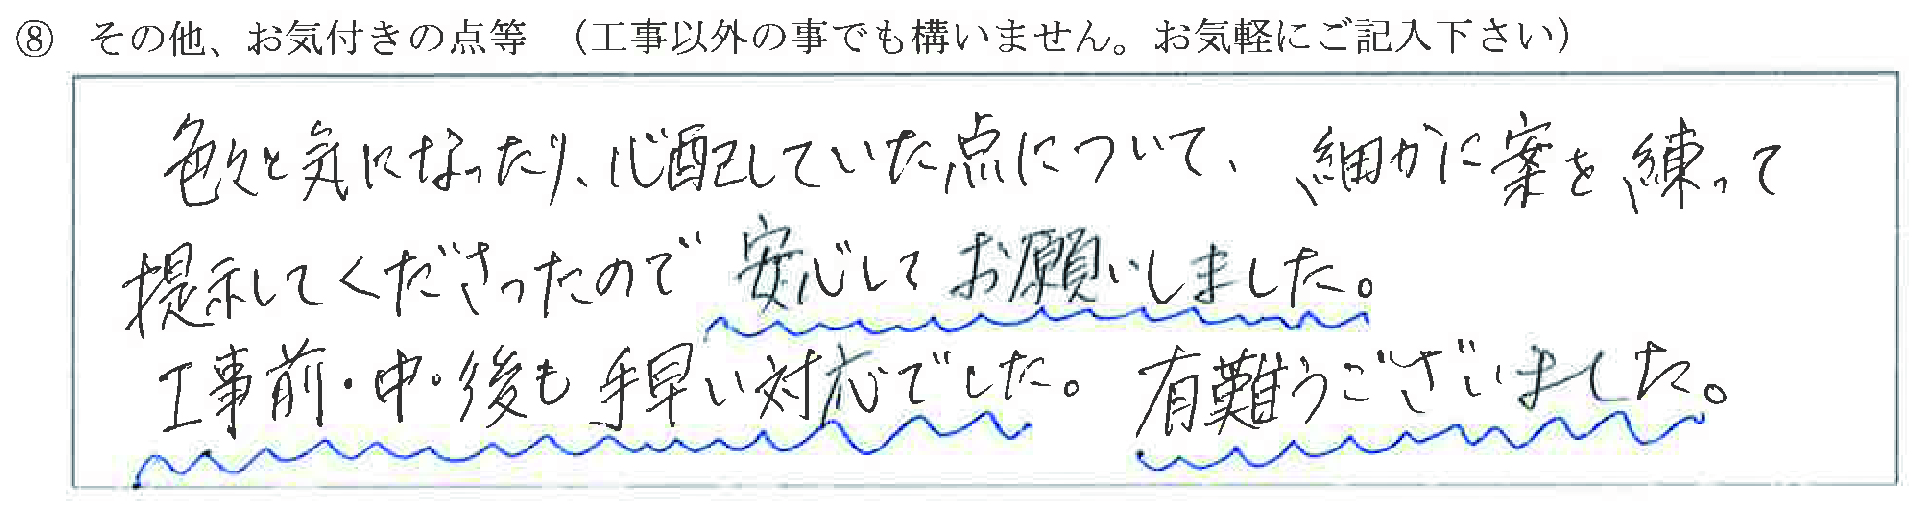 ⑧ その他、お気付きの点等 （工事以外の事でも構いません。お気軽にご記入下さい）
色々と気になったり、心配していた点について、細かに案を練って
提示してくださったので安心してお願いしました。
工事前・中・後も手早い対応でした。有難うございました。